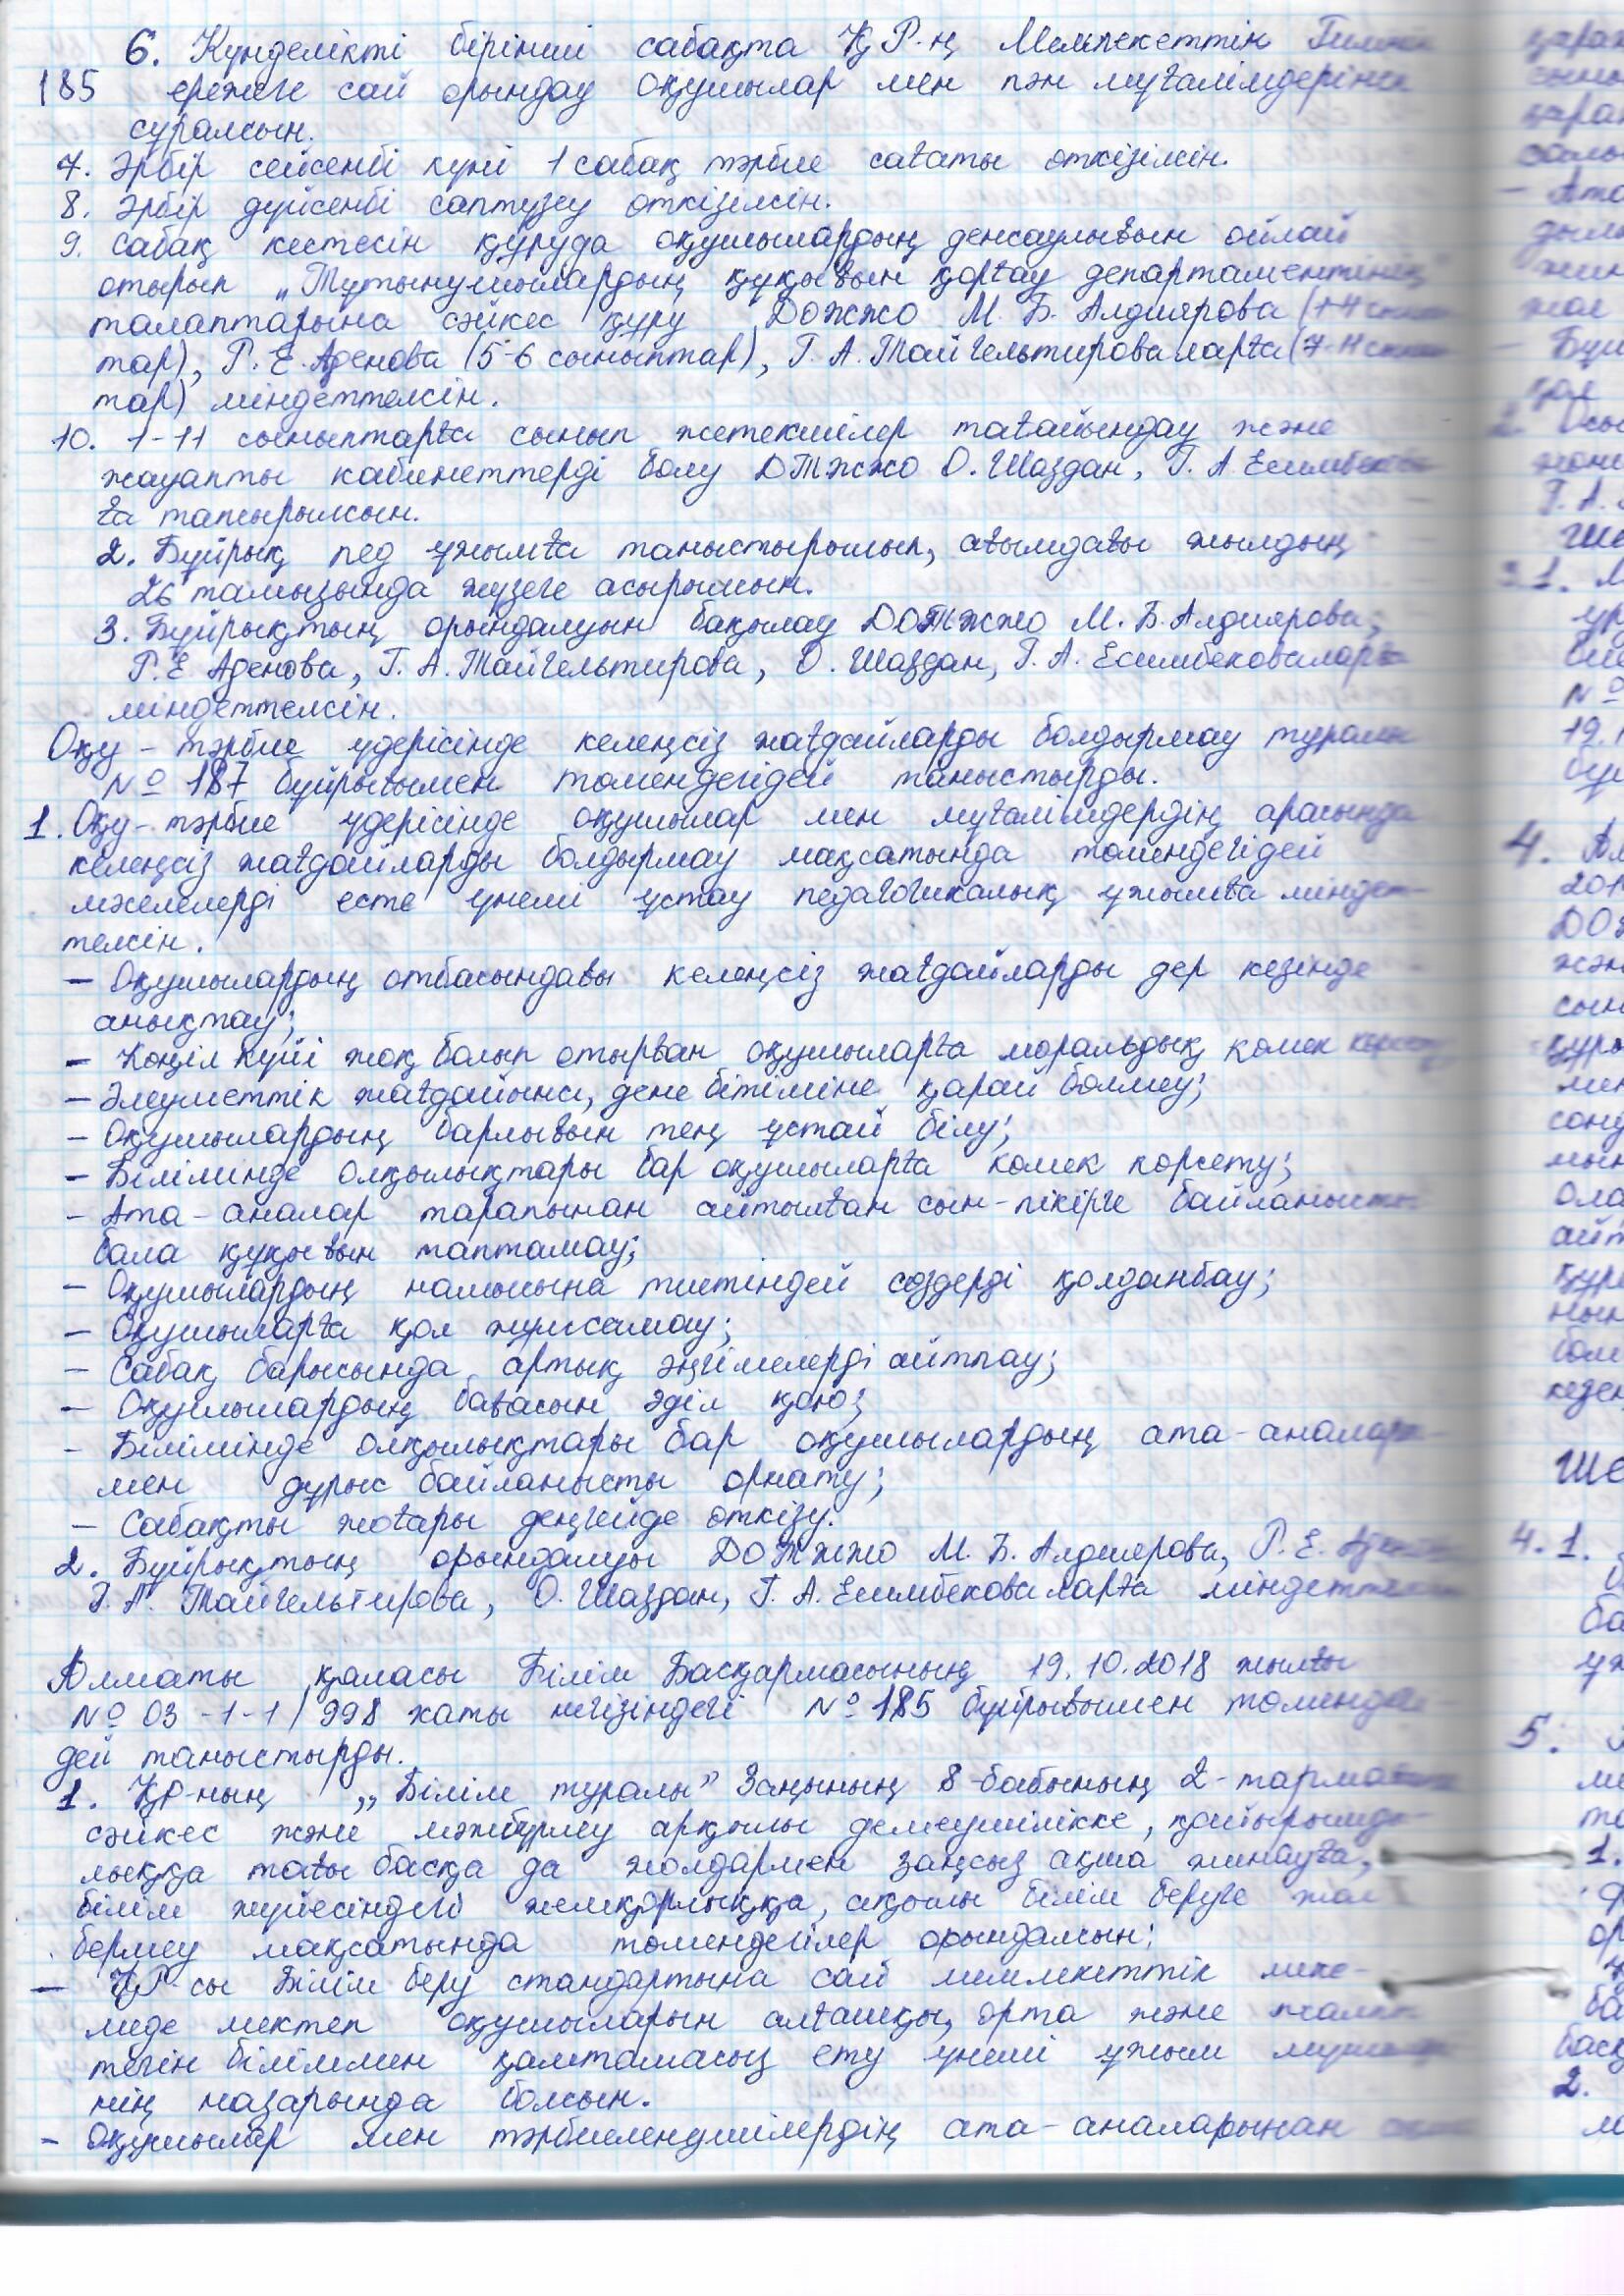 6. Күнделікті бірінші сабақта ҚР-ң Мемлекеттін Гимнін
185 ережеге сай орындау оқушылар мен пән мұғалімдерінен
сұралсын.
7. Әрбір сейсенбі күні 1 сабақ тәрбие сағаты өткізілсін.
8. Әрбір дүйсенбі саптүзеу өткізілсін.
9. Сабақ кестесін құруда оқушылардың денсаулығын ойлай
отырып „Тұтынушылардың құқығын қорғау департаментінің"
талаптарына сәйкес құру ДОЖЖО М. Б. Алдиярова (1-4 сынып
тар), Р. Е. Аденова (5-6 сыныптар), Г. А. Тайгельтироваларға (7-11 сынып
тар) міндеттелсін.
10. 1-11 сыныптарға сынып жетекшілер тағайындау және
жауапты кабинеттерді бөлу ДТЖЖО О. Шаздан, Г. А. Есимбекова
ға тапсырылсын.
2. Бұйрық пед ұжымға таныстырылып, ағымдағы жылдың
26 тамызында жүзеге асырылсын.
3. Бұйрықтың орындалуын бақылау ДОТЖЖО М. Б. Алдиярова,
Р. Е. Аденова, Г. А. Тайгельтирова, О. Шаздан, Г. А. Есимбековаларға
міндеттелсін.
Оқу-тәрбие үдерісінде келеңсіз жағдайларды болдырмау туралы
№ 187 бұйрығымен төмендегідей таныстырды.
1. Оқу-тәрбие үдерісінде оқушылар мен мұғалімдердің арасында
келеңсіз жағдайларды болдырмау мақсатында төмендегідей
мәселелерді есте үнемі ұстау педагогикалық ұжымға міндет-
телсін.
- Оқушылардың отбасындағы келеңсіз жағдайларды дер кезінде
анықтау;
- Көңіл күйі жоқ болып отырған оқушыларға моральдық көмек көрсету
- Әлеуметтік жағдайына, дене бітіміне қарай бөлмеу;
- Оқушылардың барлығын тең ұстай білу;
- Білімінде олқылықтары бар оқушыларға көмек көрсету;
- Ата-аналар тарапынан айтылған сын-пікірге байланысты
бала құқығын таптамау;
- Оқушылардың намысына тиетіндей сөздерді қолданбау;
- Оқушыларға қол жұмсамау;
- Сабақ барысында артық әңгімелерді айтпау;
- Оқушылардың бағасын әділ қою;
- Білімінде олқылықтары бар оқушылардың ата-аналары
мен дұрыс байланысты орнату;
- Сабақты жоғары деңгейде өткізу.
2. Бұйрықтың орындалуы ДОТЖЖО М. Б. Алдиярова, Р. Е. Аденова
Г. А. Тайгельтирова, О. Шаздан, Г. А. Есимбековаларға міндеттелсін
Алматы қаласы Білім Басқармасының 19.10.2018 жылғы
№ 03-1-1/998 хаты негізіндегі № 185 бұйрығымен төмендегі-
дей таныстырды.
1. ҚР-ның „Білім туралы" Заңының 8-бабының 2-тармағына
сәйкес және мәжбүрлеу арқылы демеушілікке, қайырымды-
лыққа тағы басқа да жолдармен заңсыз ақша жинауға,
білім жүйесіндегі жемқорлыққа, ақылы білім беруге жол
бермеу мақсатында төмендегілер орындалсын:
- ҚР сы Білім беру стандартына сай мемлекеттік меке-
меде мектеп оқушыларын алғашқы, орта және жалпы
тегін біліммен қамтамасыз ету үнемі ұжым мүшеле
нің назарында болсын.
- Оқушылар мен тәрбиеленушілердің ата-аналарынан